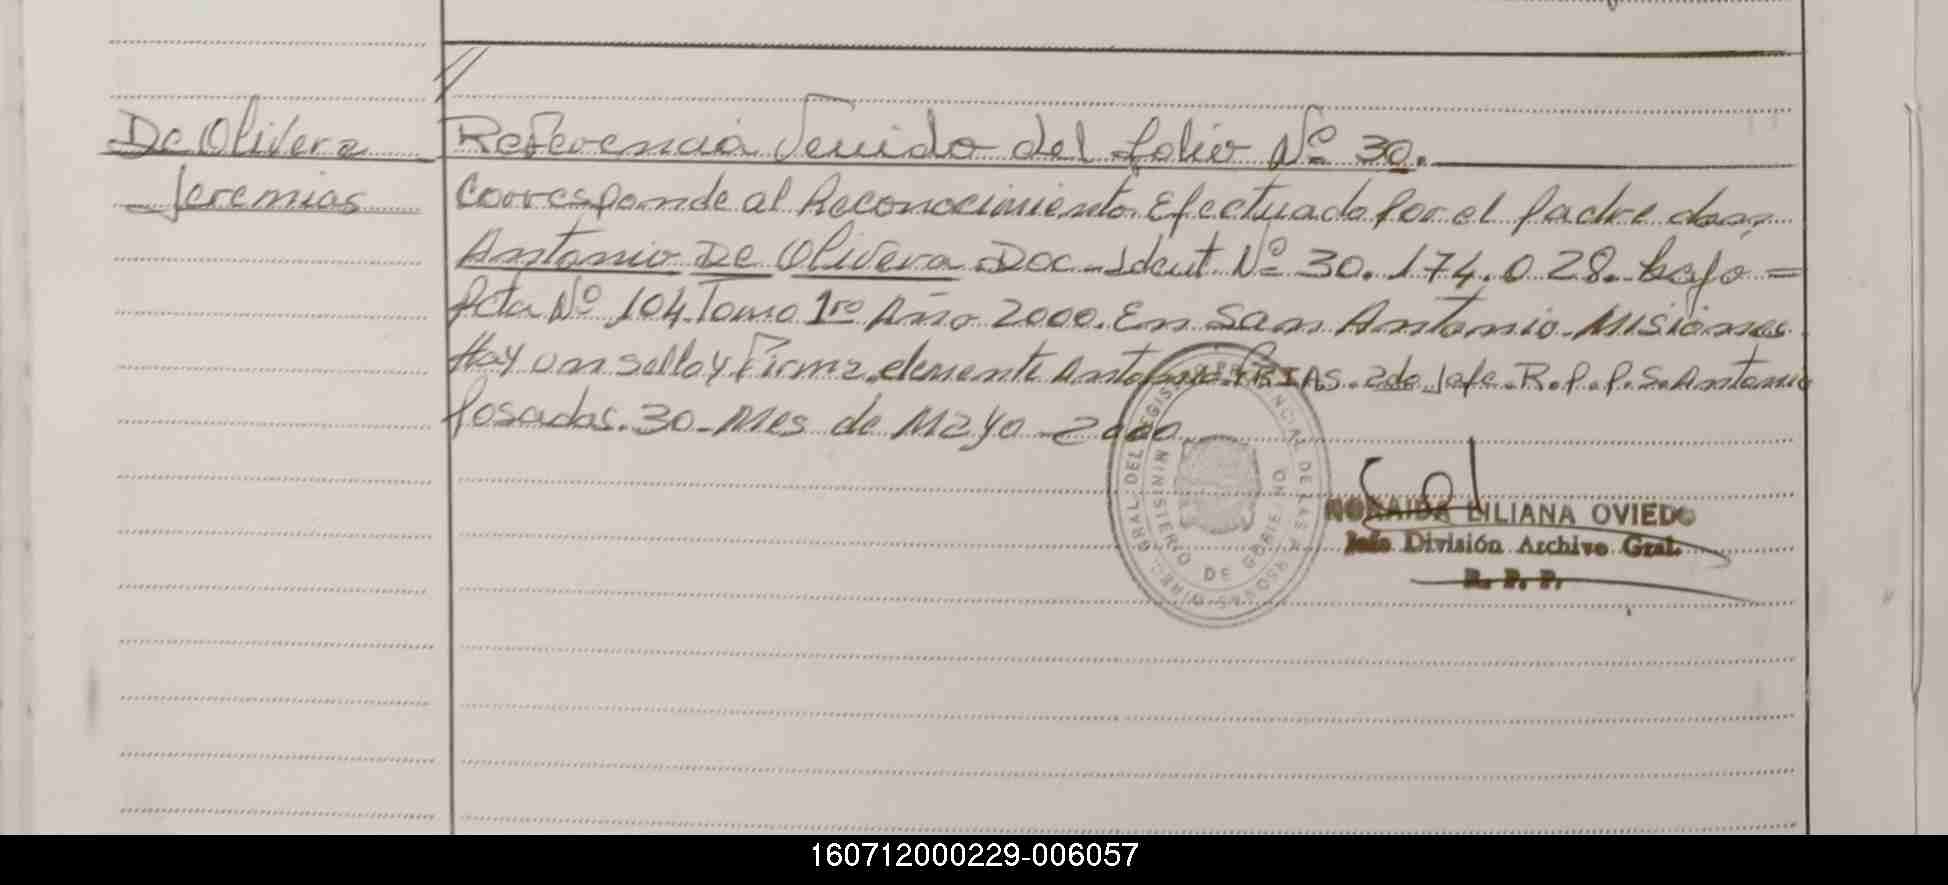 De Olivera
Jeremias
Referencia Venido del folio Nº 30.
Corresponde al Reconocimiento Efectuado por el padre don,
Antonio De Olivera. Doc-Ident Nº 30.174.028. bajo =
Acta Nº 104. Tomo 1ro Año 2000. En San Antonio. Misiones.
Hay un sello y Firma. clemente Antonio FRIAS. 2do Jefe. R.P.P. S. Antonio
Posadas. 30. Mes de Mayo - 2000
MINISTERIO DE GOBIERNO
NORAIDA LILIANA OVIEDO
Jefe División Archivo Gral.
R. P. P.
160712000229-006057